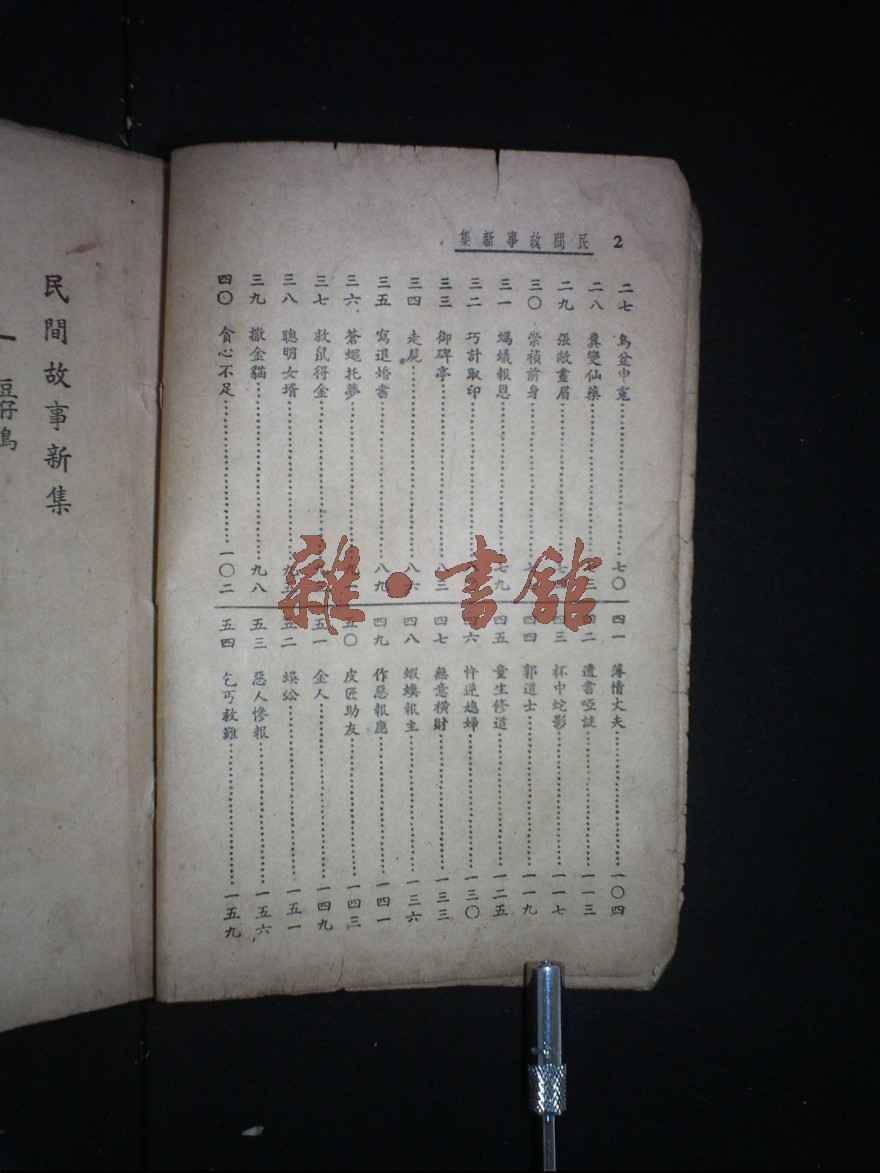 2 民間故事新集
二七 烏盆申寃……七〇
二八 糞變仙藥……三
二九 張敞畫眉……七
三〇 崇禎前身……七
三一 螞蟻報恩……七九
三二 巧計取印……八
三三 御碑亭……八三
三四 走屍……八六
三五 寫退婚書……八九
三六 蒼蠅托夢……九
三七 救鼠得金……九
三八 聰明女壻……九五
三九 撒金貓……九八
四〇 貪心不足……一〇二
四一 薄情丈夫……一〇四
四二 遺書啞謎……一一三
四三 杯中蛇影……一一七
四四 郭道士……一一九
四五 童生修道……一二五
四六 忤逆媳婦……一三〇
四七 無意橫財……一三三
四八 蝦蟆報主……一三六
四九 作惡報應……一四一
五〇 皮匠助友……一四三
五一 金人……一四九
五二 蜈蚣……一五一
五三 惡人慘報……一五六
五四 乞丐救難……一五九
民間故事新集
一 豆仔鳥
雜·書館